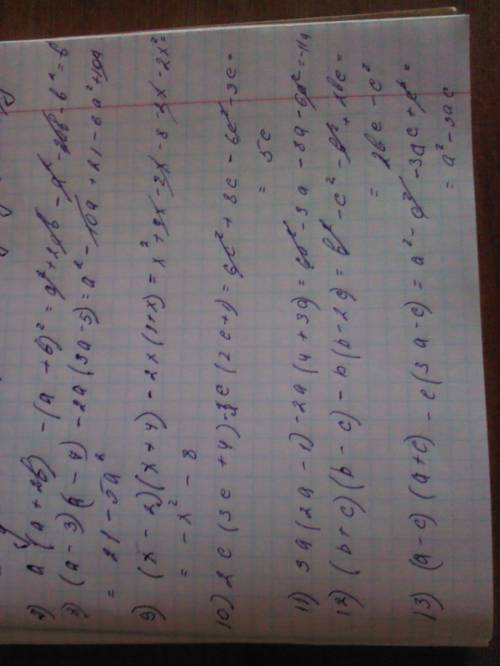 2) a(a+2b) -(a +b)² = a²+2ab -a²-2ab-b²=-b
3) (a-3)(a-7) -2a(3a-5)=a²-10a+21-6a²+10a
= 21-5a²
9) (x-2)(x+4)-2x(1+x)=x²+4x-2x-8-2x-2x²=
= -x² - 8
10) 2c(3c+4)-3c(2c+1)=6c²+8c-6c²-3c=
= 5c
11) 3a(2a-1)-2a(4+3a)=6a²-3a-8a-6a²=-11a
12) (b+c)(b-c)-b(b-2c)=b²-c²-b²+2bc=
= 2bc-c²
13) (a-c)(a+c)-c(3a-c)=a²-c²-3ac+c²=
= a²-3ac